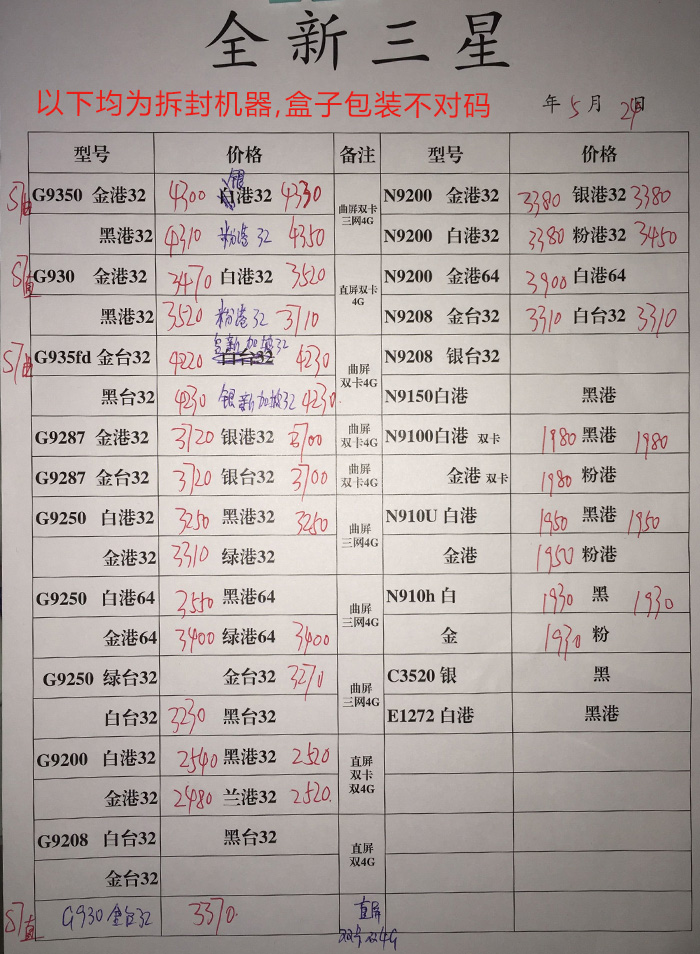 全新三星
以下均为拆封机器,盒子包装不对码
年5月24日
型号 价格 备注 型号 价格
S7曲 G9350 金港32 4300 银港32 4330 曲屏双卡三网4G N9200 金港32 3380 银港32 3380
黑港32 4310 粉港32 4350 N9200 白港32 3380 粉港32 3450
S7直 G930 金港32 3470 白港32 3520 直屏双卡4G N9200 金港64 3900 白港64
黑港32 3520 粉港32 3710 N9208 金台32 3310 白台32 3310
S7曲 G935fd 金台32 4220 金新加坡32 白台32 4230 曲屏双卡4G N9208 银台32
黑台32 4230 银新加坡32 4230 N9150白港 黑港
G9287 金港32 3720 银港32 3700 曲屏双卡4G N9100白港 双卡 1980 黑港 1980
G9287 金台32 3720 银台32 3700 曲屏双卡4G 金港 双卡 1980 粉港
G9250 白港32 3250 黑港32 3250 曲屏三网4G N910U 白港 1950 黑港 1950
金港32 3310 绿港32 金港 1950 粉港
G9250 白港64 3550 黑港64 曲屏三网4G N910h 白 1930 黑 1930
金港64 3400 绿港64 3400 金 1930 粉
G9250 绿台32 金台32 3270 曲屏三网4G C3520 银 黑
白台32 3230 黑台32 E1272 白港 黑港
G9200 白港32 2540 黑港32 2520 直屏双卡双4G
金港32 2480 兰港32 2520
G9208 白台32 黑台32 直屏双4G
金台32
S7直 G930 金台32 3370 直屏